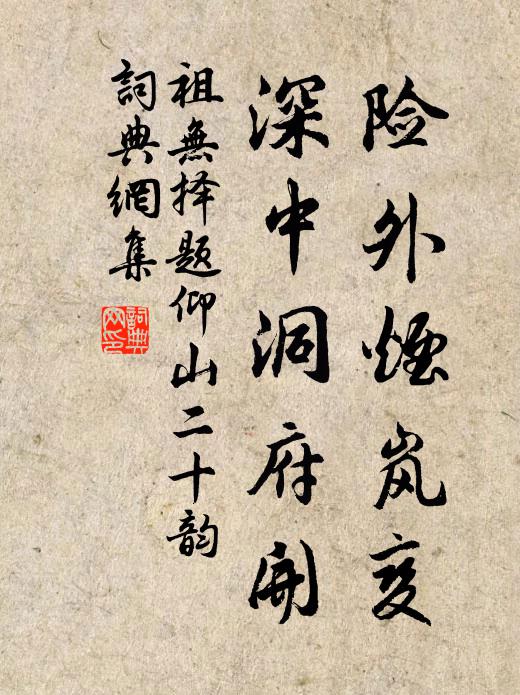 险外煙岚变
深中洞府開
祖無择题仰山二十韵
詞典網集
詞典
网印